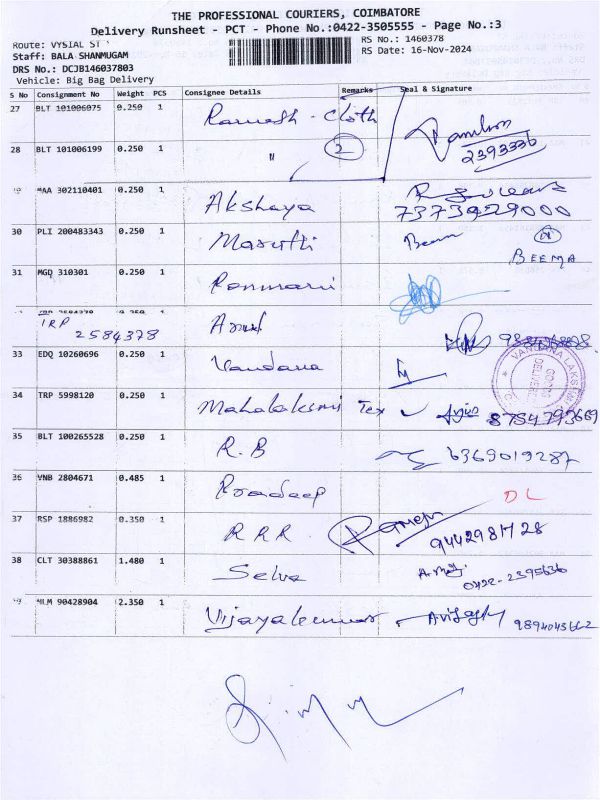 THE PROFESSIONAL COURIERS, COIMBATORE
Delivery Runsheet - PCT - Phone No.:0422-3505555 - Page No.:3
Route: VYSIAL ST
RS No.: 1460378
Staff: BALA SHANMUGAM
RS Date: 16-Nov-2024
DRS No.: DCJB146037803
Vehicle: Big Bag Delivery
S No Consignment No Weight PCS Consignee Details Remarks Seal & Signature
27 BLT 101006075 0.250 1 Ramesh - Cloth
28 BLT 101006199 0.250 1 " 2 2393336
MAA 302110401 0.250 1 Akshaya 7373929000
30 PLI 200483343 0.250 1 Maruthi Beem BEEMA
31 MGD 310301 0.250 1 Ponmani
IRP 2584378 Arul
33 EDQ 10260696 0.250 1 Vandana
34 TRP 5998120 0.250 1 Mahalakshmi Tex 8784793669
35 BLT 100265528 0.250 1 R.B 6369019287
36 VNB 2804671 0.485 1 Pradeep DL
37 RSP 1886982 0.350 1 RRR Ramesh 9442981728
38 CLT 30388861 1.480 1 Selva 0422-2395636
NLM 90428904 2.350 1 Vijayakumar